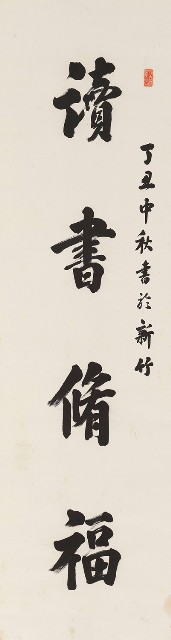 丁丑中秋書於新竹
讀書脩福